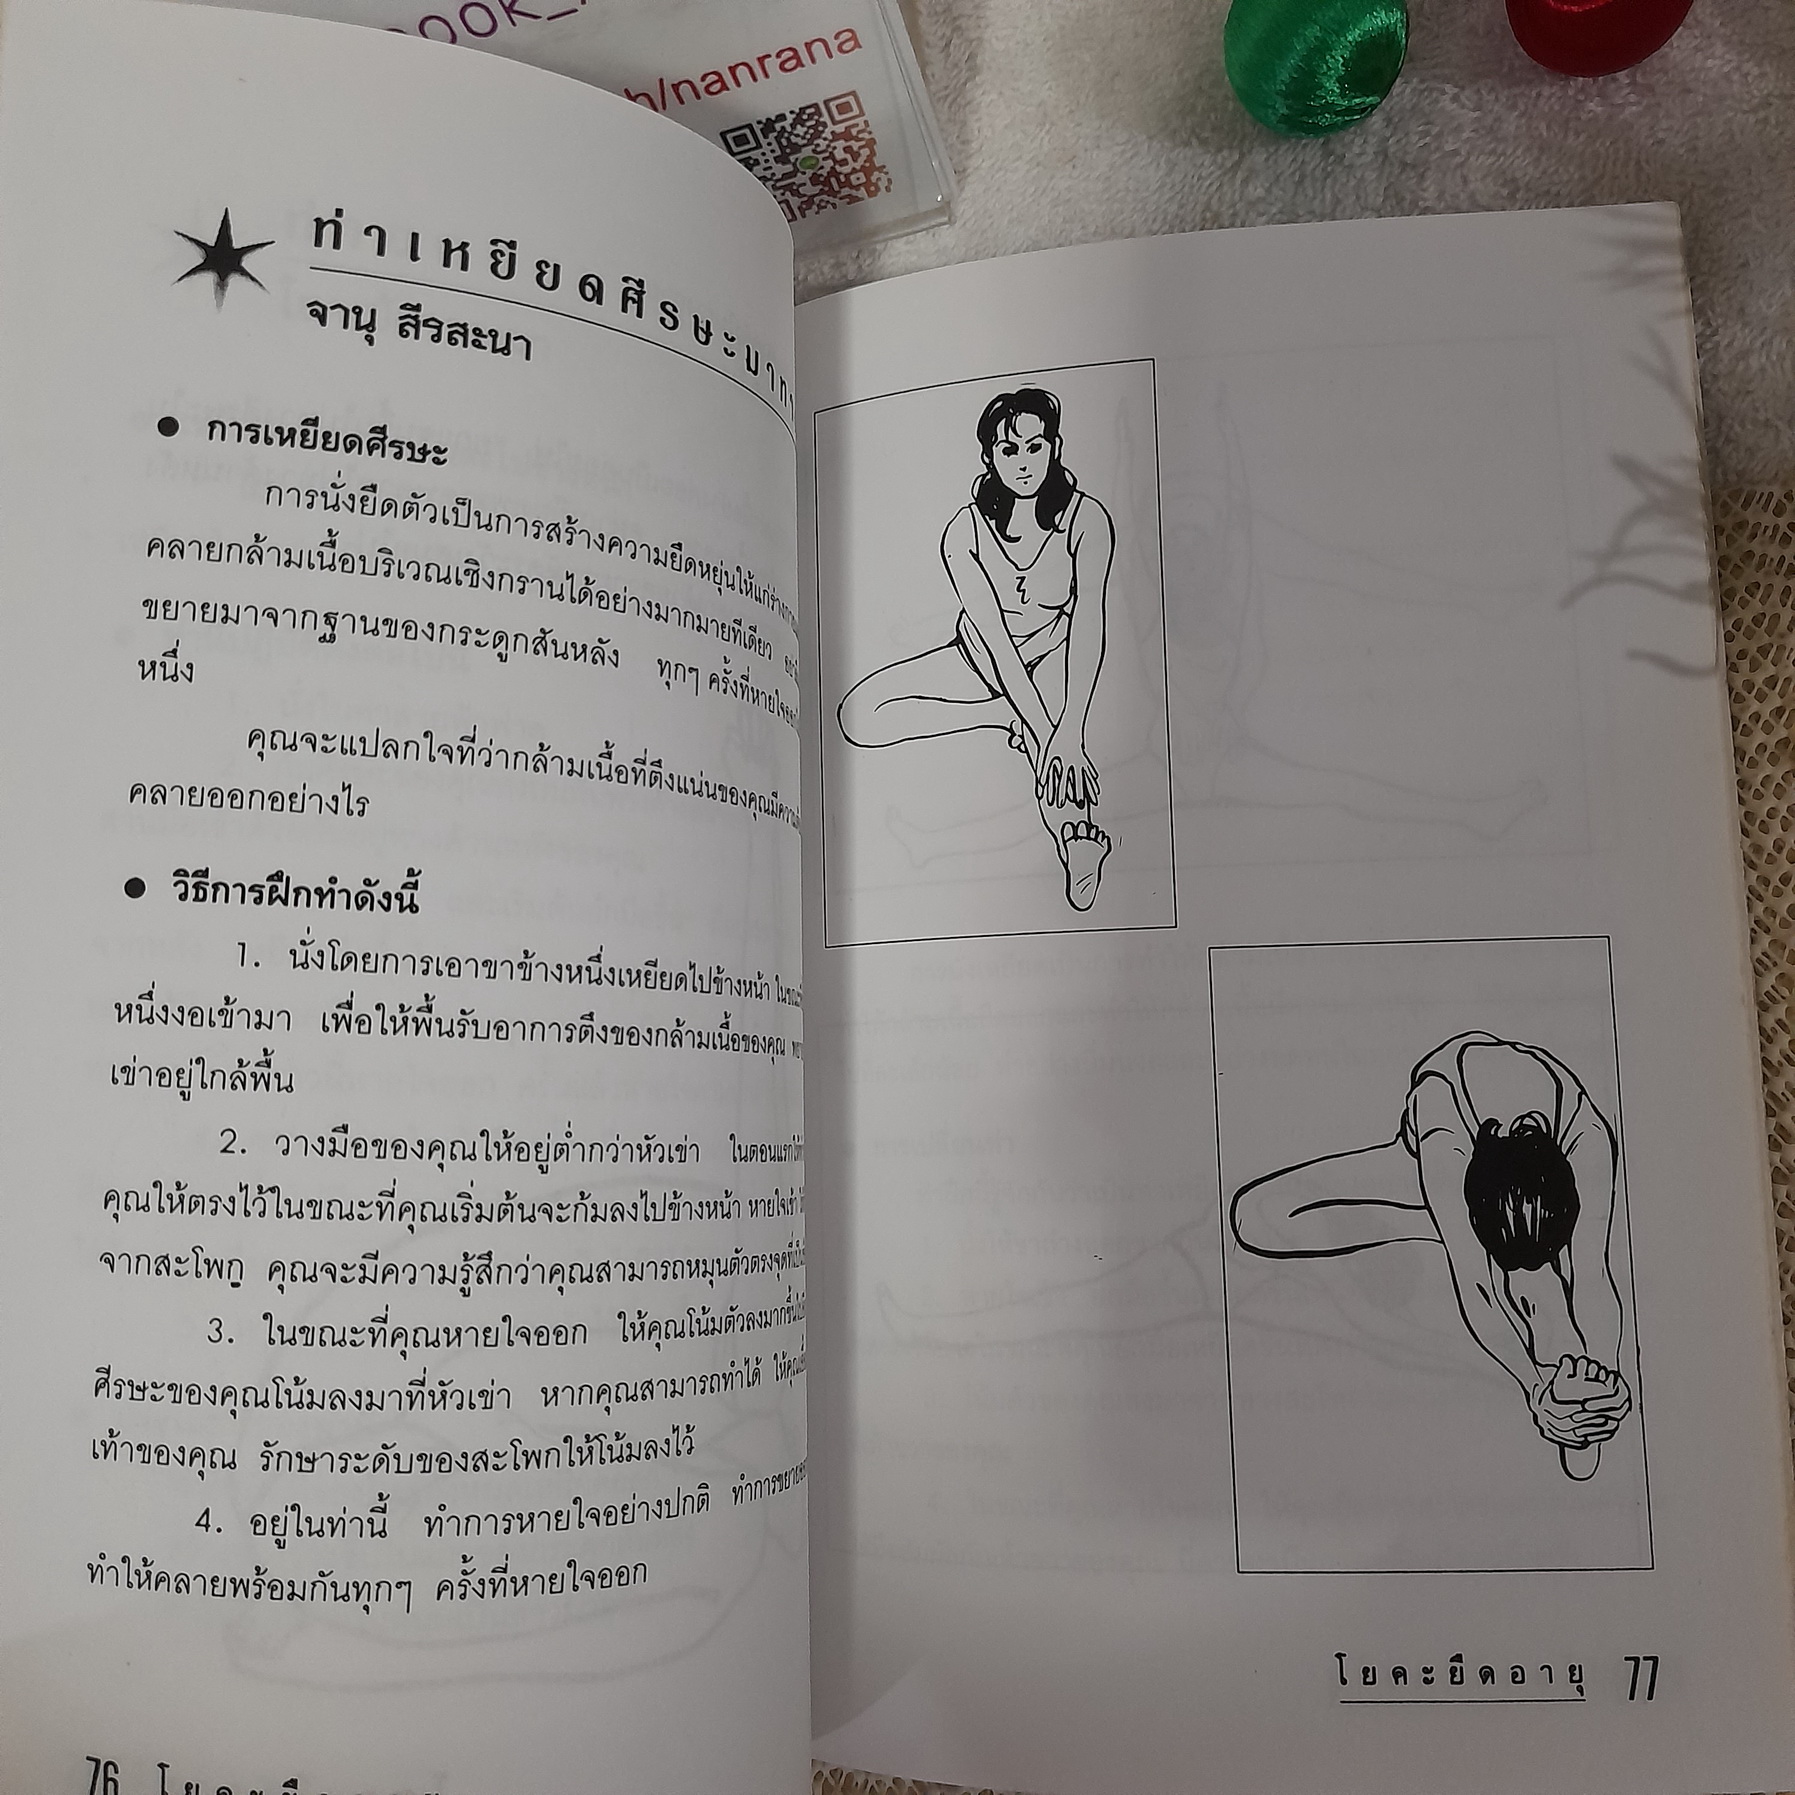 h/nanrana
ท่าเหยียดศีรษะ
จานุ สีรสะนา
● การเหยียดศีรษะ
การนั่งยืดตัวเป็นการสร้างความยืดหยุ่นให้แก่
คลายกล้ามเนื้อบริเวณเชิงกรานได้อย่างมากมายทีเดียว
ขยายมาจากฐานของกระดูกสันหลัง ทุกๆ ครั้งที่หายใจ
หนึ่ง
คุณจะแปลกใจที่ว่ากล้ามเนื้อที่ตึงแน่นของคุณ
คลายออกอย่างไร
● วิธีการฝึกทำดังนี้
1. นั่งโดยการเอาขาข้างหนึ่งเหยียดไปข้างหน้า
หนึ่งงอเข้ามา เพื่อให้พื้นรับอาการตึงของกล้ามเนื้อของคุณ
เข่าอยู่ใกล้พื้น
2. วางมือของคุณให้อยู่ต่ำกว่าหัวเข่า ในตอนแรก
คุณให้ตรงไว้ในขณะที่คุณเริ่มต้นจะก้มลงไปข้างหน้า หายใจเข้า
จากสะโพก คุณจะมีความรู้สึกว่าคุณสามารถหมุนตัวตรงจุดที่
3. ในขณะที่คุณหายใจออก ให้คุณโน้มตัวลงมากขึ้น
ศีรษะของคุณโน้มลงมาที่หัวเข่า หากคุณสามารถทำได้
เท้าของคุณ รักษาระดับของสะโพกให้โน้มลงไว้
4. อยู่ในท่านี้ ทำการหายใจอย่างปกติ
ทำให้คลายพร้อมกันทุกๆ ครั้งที่หายใจออก
76
โยคะยืดอายุ 77